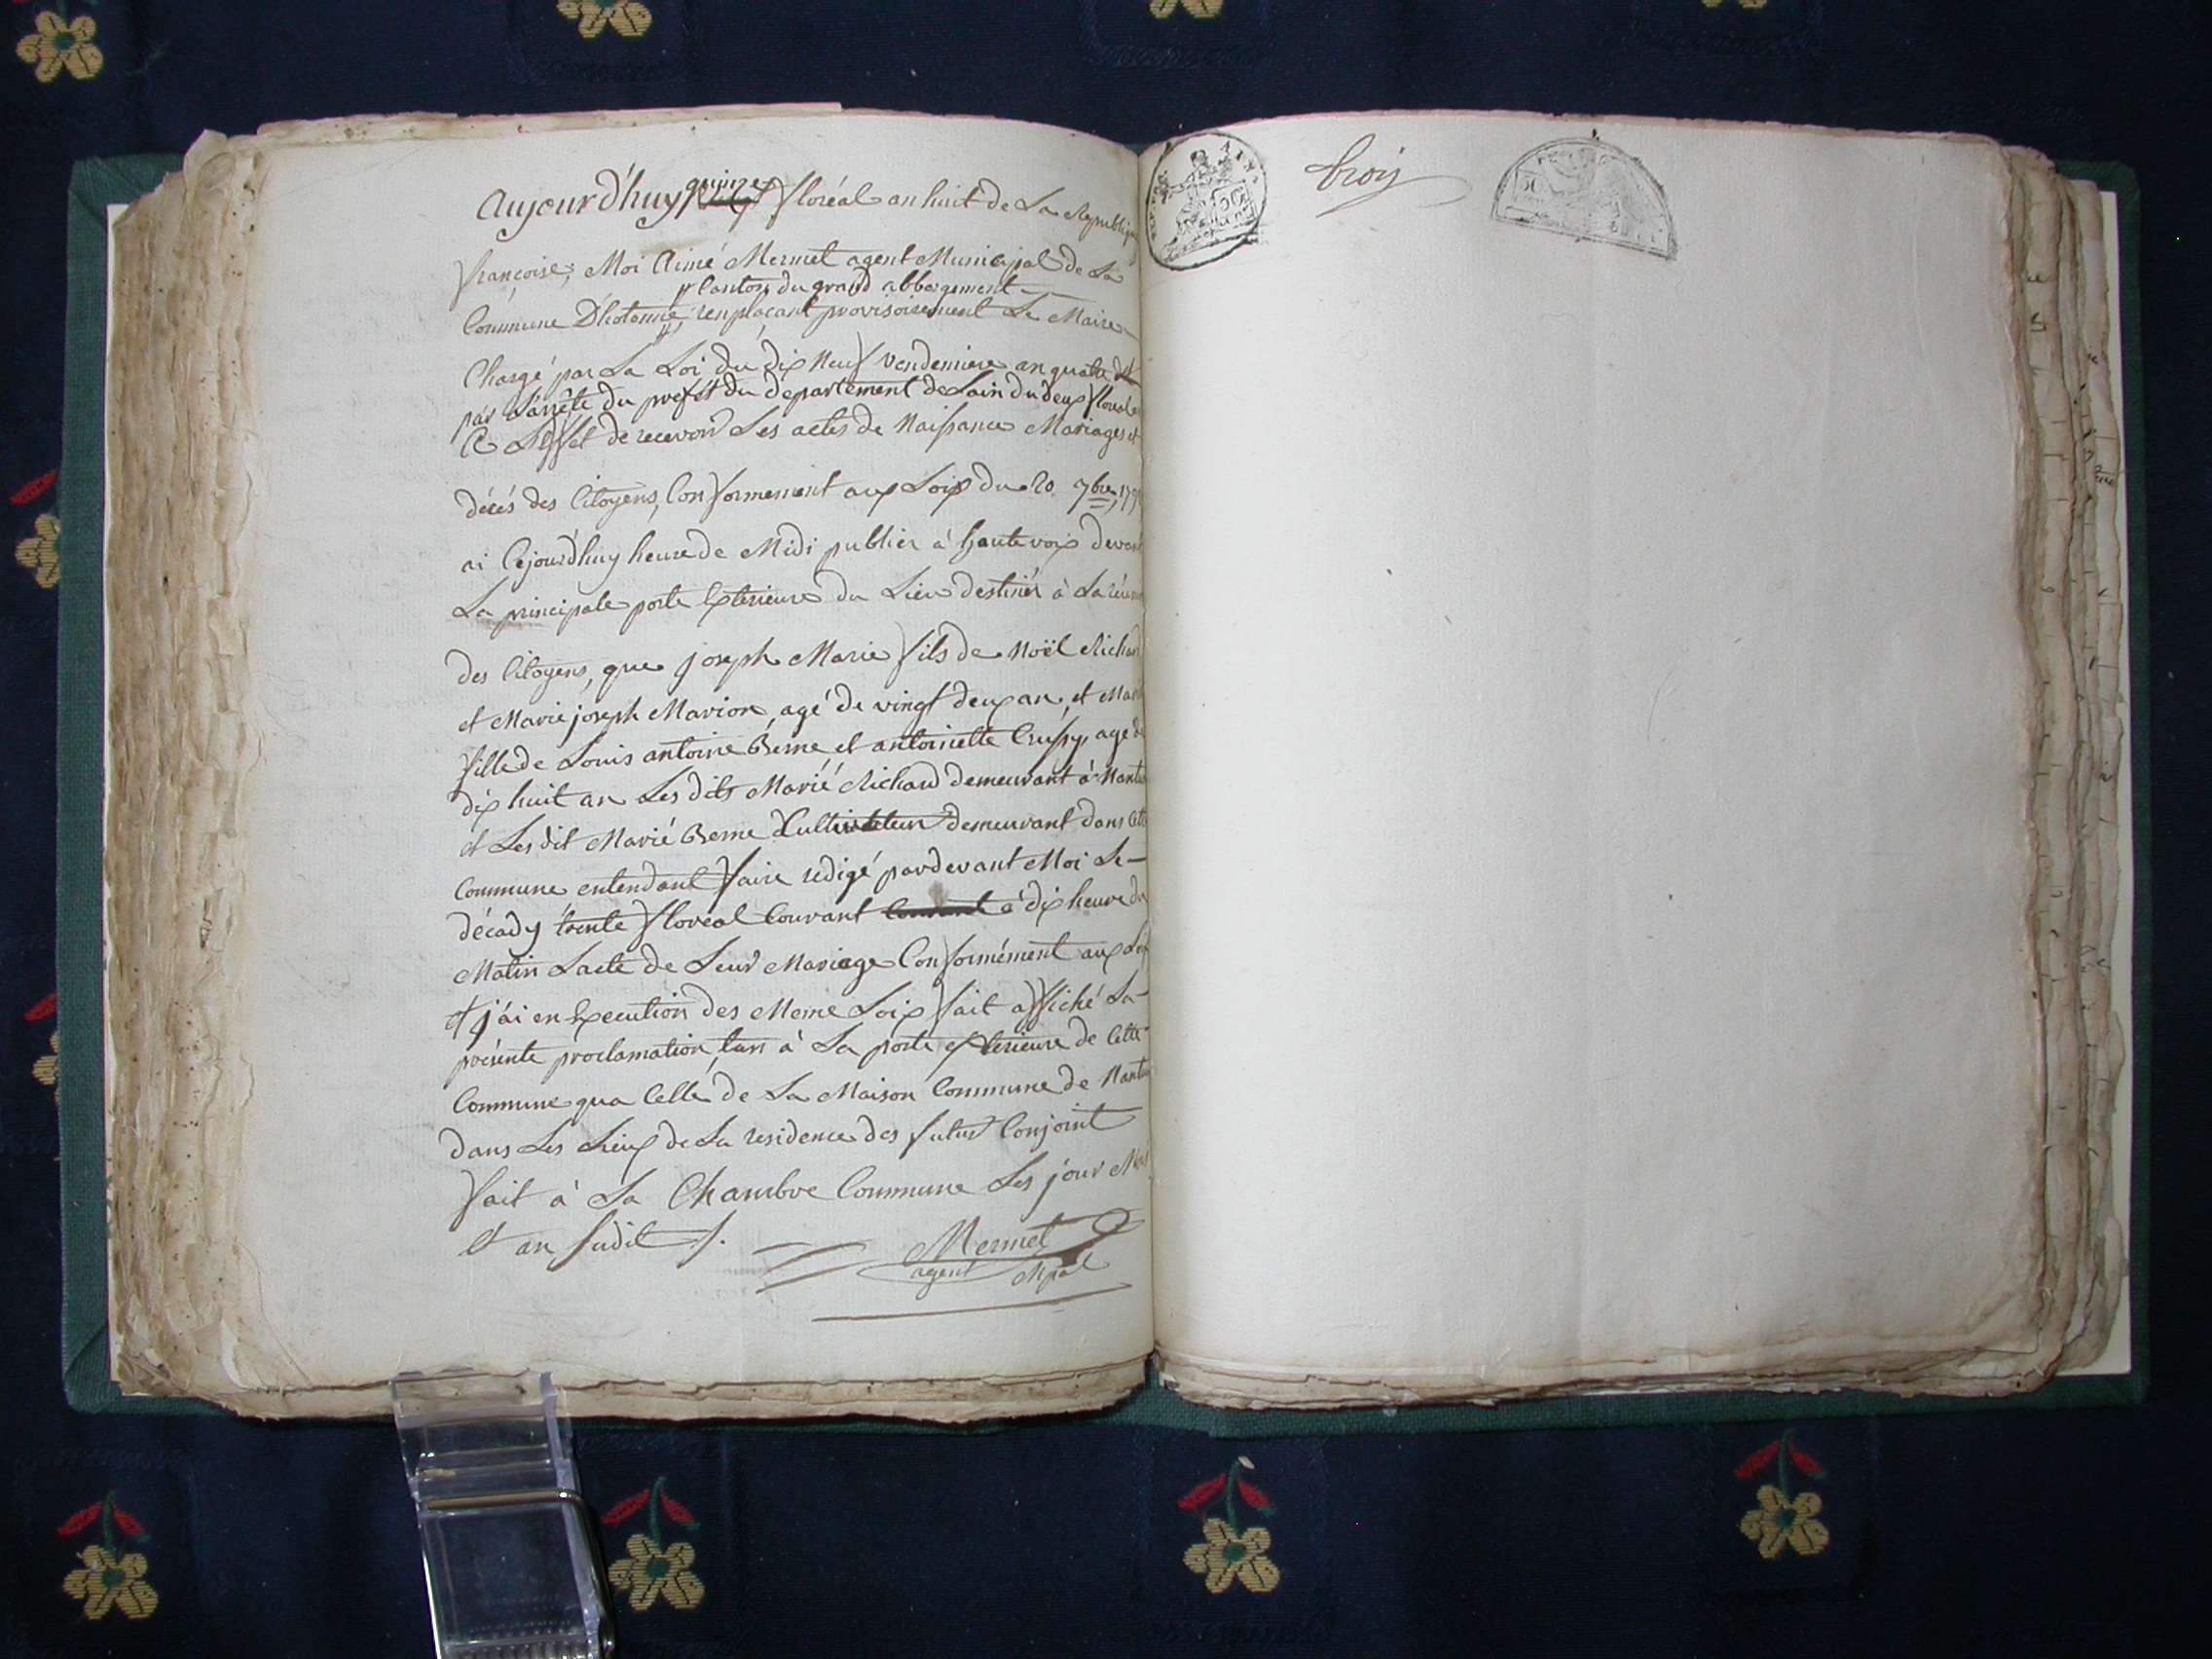 Aujourd'huy quinze floréal an huit de La Republique
françoise, Moi Aimé Mermet agent Municipal de La
Canton du grand abbergement
Commune D'hotonne, renplaçant provisoirement Le Maire
Chargé par La Loi du Dix Neuf Vendemiere an quatre et
par L'arrêté du prefet du departement de Lain du deux floreal
a Leffet de recevoir Les actes de Naissance Mariages et
décés des Citoyens, Conformement aux Loix du 20 7bre 179
ai Cejourd'huy heure de Midi publier à haute voix devant
La principale porte Exterieure du Lieu destinér à La réunion
des Citoyens, que joseph Marie fils de Noël Richard
et Marie joseph Marion, agé de vingt deux an, et
fille de Louis antoine Berne et antoinette age de
dix huit an Les dits Marié Richard demeurant à Nantua
et Les dit Marié Berne Cultivateur demeurant dans cette
Commune entendant faire redigé pardevant Moi Le
décady trente floréal Courant Courant à dix heure du
Matin Lacte de Leur Mariage Conformément aux Loix
et j'ai en Execution des Meme Loix fait affiché La
présente proclamation tans à La porte exterieure de Cette
Commune qua Celle de La Maison Commune de Nantua
dans Les Lieux de La residence des futur Conjoint
fait à La Chambre Commune Les jour Mois
et an sudit
Mermet
agent Mpal
trois
50
50